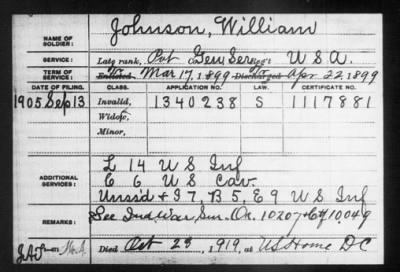 NAME OF SOLDIER: Johnson, William
SERVICE: Late rank, Pvt Gen Ser Reg't U S A.
TERM OF SERVICE: Enlisted Mar 17, 1899 Discharged Apr 22, 1899
DATE OF FILING. CLASS. APPLICATION NO. LAW. CERTIFICATE NO.
1905 Sep 13 Invalid, 1340238 S 1117881
Widow,
Minor,
ADDITIONAL SERVICES: L 14 U S Inf
E 6 U S Cav.
Unss'd & I 7, B 5, E 9 U S Inf
REMARKS: See Ind. War, Sur. Or. 10207 + Ctf 10,049
Died Oct 23, 1919, at US Home D C